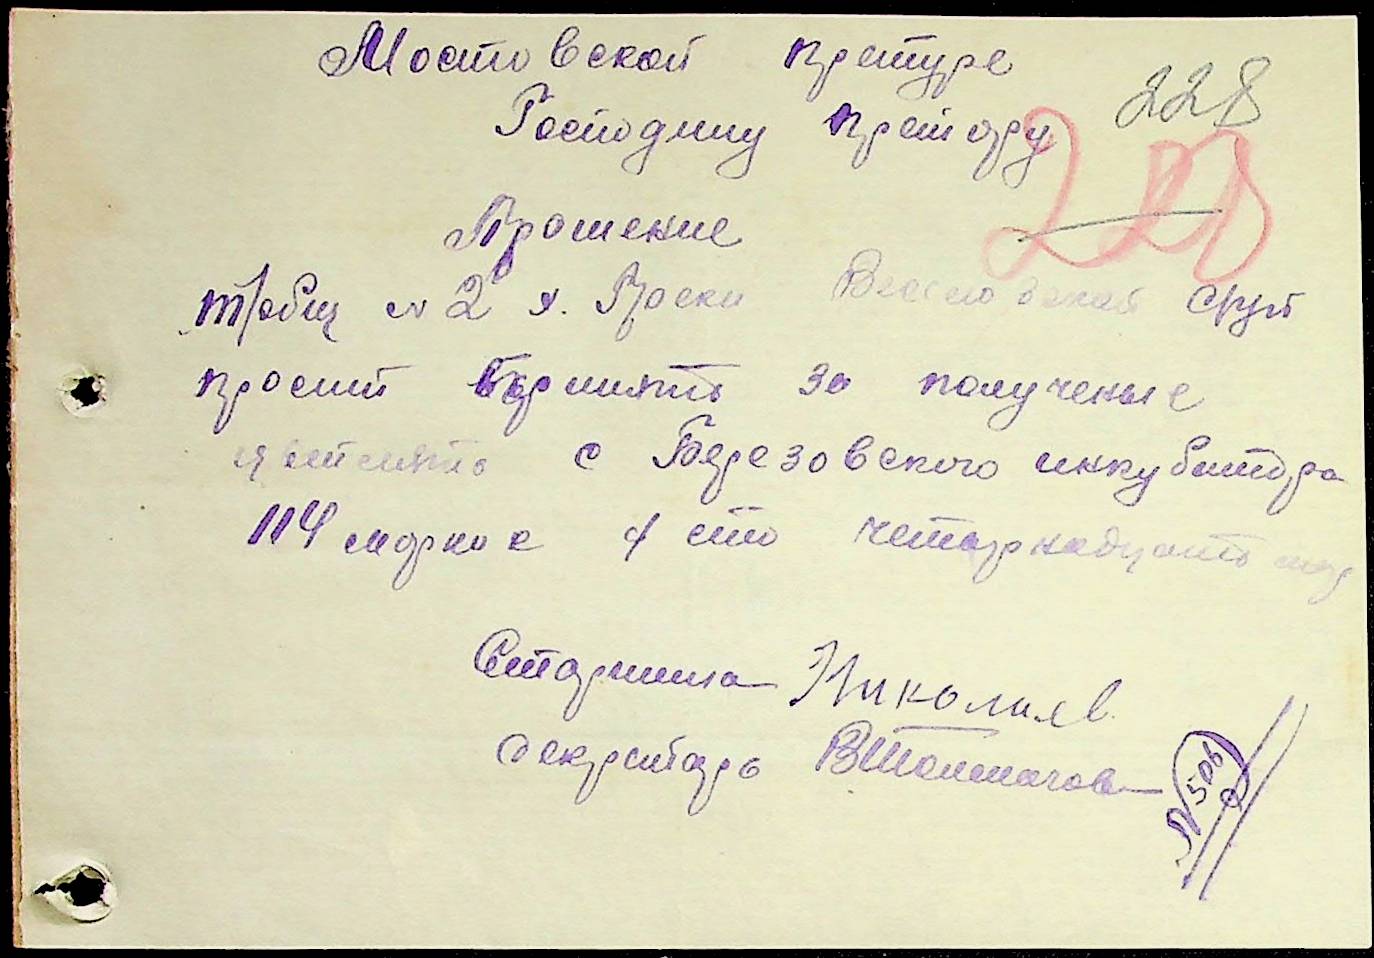 Мостовской претуре
228
Господину претору
220
Прошение
т/общ № 2 х. Пасеки Веселовской
просит принять за полученые
цыплята с Березовского инкубатора
114 марок / сто четырнадцать мар
Старшина Николаев
Секретарь ВТолмачова